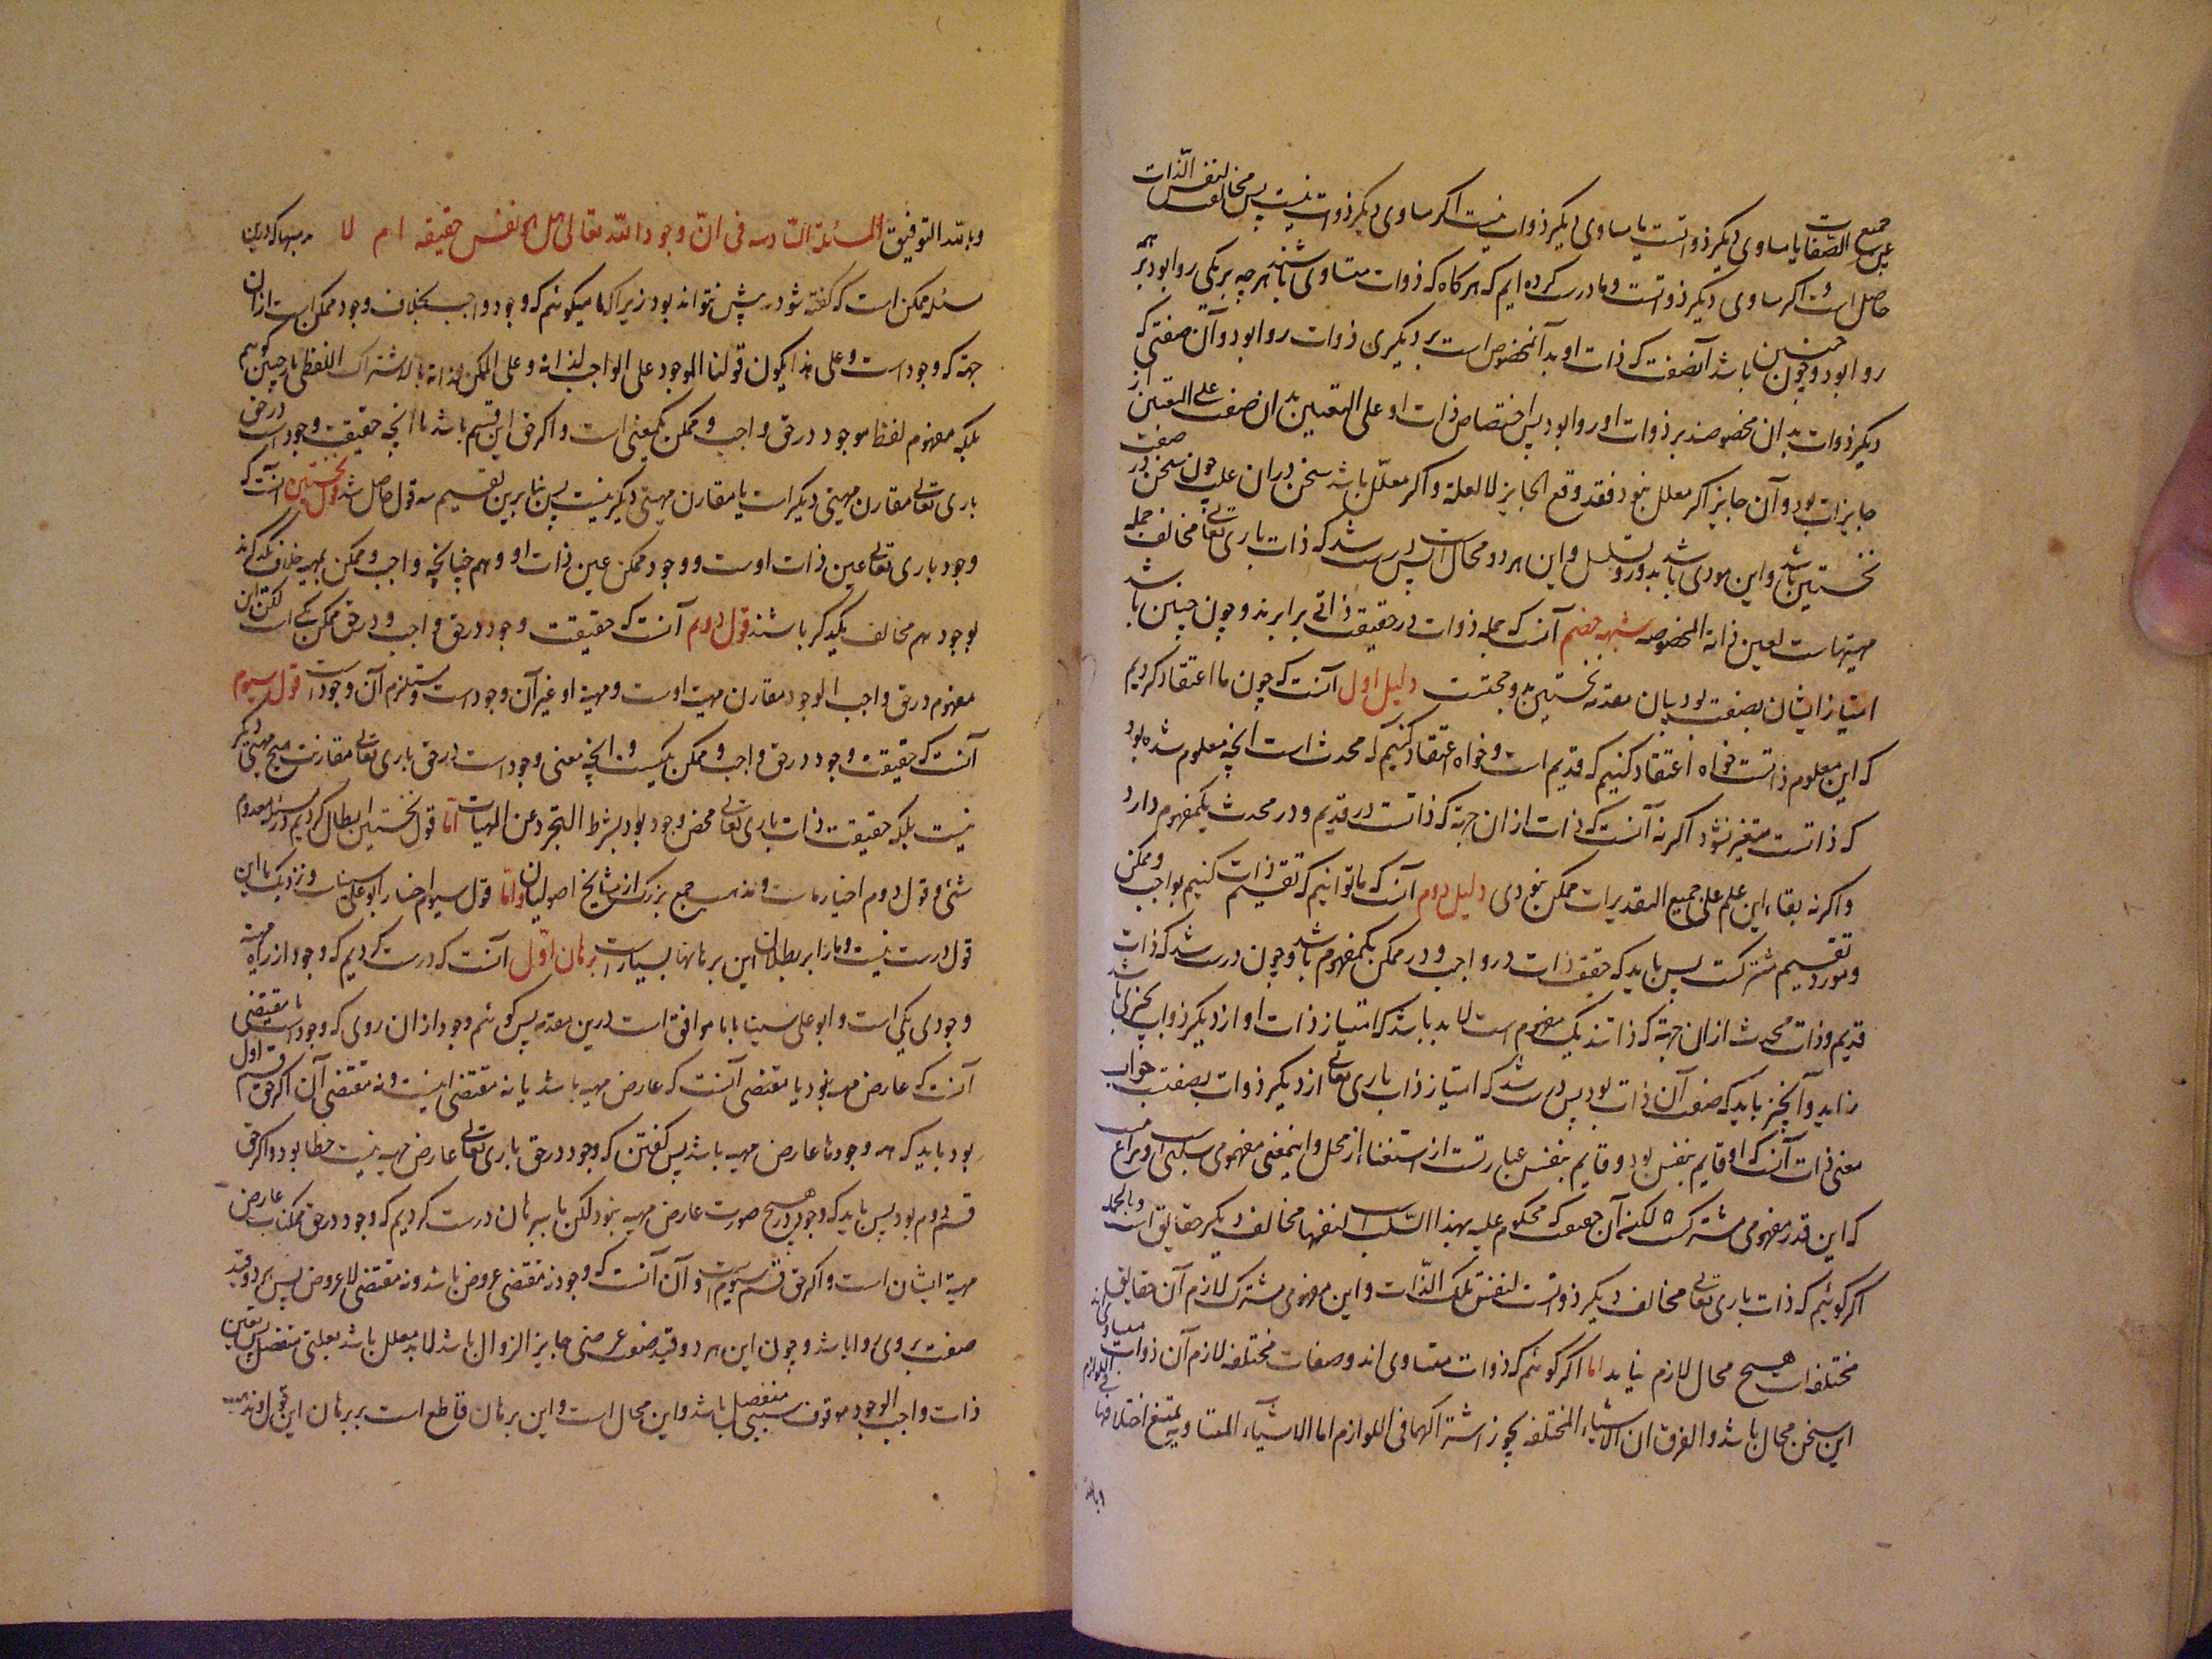 عین جمیع الصفات یا مساوی دیگر ذواتست یا مساوی دیگر ذوات نیست اگر مساوی دیگر ذوات نیست پس مخالف لنفس الذات
حاصل است و اگر مساوی دیگر ذواتست و ما درست کرده ایم که هر گاه که ذوات متساوی باشند هر چه بر یکی روا بود بر همه
روا بود و چون چنین باشد آنصفت که ذات او بدان مخصوص است بر دیگری ذوات روا بود و آن صفتی که
دیگر ذوات بدان مخصوصند بر ذوات او روا بود پس اختصاص ذات او علی التعیین بدان صفت علی التعیین از
جایزات بود و آن جایز اگر معلل نبود فقد وقع الجایز لا لعلة و اگر معلل باشد سخن در آن علت چون سخن در صفت
نخستین باشد و این مودی باشد بدور و تسلسل و این هر دو محال است پس درست شد که ذات باری تعالی مخالف جمله
مهیتهاست لعین ذاته المخصوصه شبهه خصم آنست که جمله ذوات در حقیقت ذاتی برابرند و چون چنین باشد
امتیاز ایشان بصفت بود بیان مقدمه نخستین بدو حجتست دلیل اول آنست که چون ما اعتقاد کردیم
که این معلوم ذاتست خواه اعتقاد کنیم که قدیم است و خواه اعتقاد کنیم که محدث است انچه معلوم شده بود
که ذاتست متغیر نشود اگر نه آنست که ذات از ان جهة که ذاتست در قدیم و در محدث یکمفهوم دارد
و اگر نه بقاء این علم علی جمیع التقدیرات ممکن نبودی دلیل دوم آنست که ما توانیم که تقسیم ذات کنیم بواجب و ممکن
و مورد تقسیم مشترکست پس باید که حقیقت ذات در واجب و در ممکن یکمفهوم باشد و چون درست شد که ذات
قدیم و ذات محدث از ان جهة که ذاتند یک مفهوم است لا بد باشد که امتیاز ذات او از دیگر ذوات بچیزی باشد
زاید و آنچیز باید که صفت آن ذات بود پس درست شد که امتیاز ذات باری تعالی از دیگر ذوات بصفت است جواب
معنی ذات آنست که او قایم بنفس بود و قایم بنفس عبارتست از استغناء از محل و اینمعنی مفهومی سلبی است و نزاع نیست
که این قدر مفهومی مشترکست لکن آن حقیقت که محکوم علیه بهذا السلب است لنفسها مخالف دیگر حقایق است و بالجمله
اگر گوئیم که ذات باری تعالی مخالف دیگر ذواتست لنفس تلک الذات و این مفهومی مشترک لازم آن حقایق
مختلفه است هیچ محال لازم نیاید اما اگر گوئیم که ذوات متساوی اند و صفات مختلفه لازم آن ذوات متساوی اند
این سخن محال باشد و الفرق ان الاشیاء المختلفه یجوز اشتراکها فی اللوازم اما الاشیاء المتساویه یمتنع اختلافها فی اللوازم
و بالله
و بالله التوفیق المسئلة السادسه فی ان وجود الله تعالی هل هو نفس حقیقته ام لا مذهبها که درین
مسئله ممکن است که گفته شود بیش نتواند بود زیرا که ما میگوئیم که وجود واجب بخلاف وجود ممکن است از ان
جهة که وجود است و علی هذا یکون قولنا الموجود علی الواجب لذاته و علی الممکن لذاته بالاشتراک اللفظی یا چنین گوئیم
بلکه مفهوم لفظ موجود در حق واجب و ممکن یکمعنی است و اگر حق این قسم باشد یا انچه حقیقت وجود است در حق
باری تعالی مقارن مهیتی دیگر است یا مقارن مهیتی دیگر نیست پس بنا برین تقسیم سه قول حاصل شد قول نخستین آنست که
وجود باری تعالی عین ذات اوست و وجود ممکن عین ذات او و هم چنانچه واجب و ممکن بمهیت خلاف یکدیگرند
بوجود هم مخالف یکدگر باشند قول دوم آنست که حقیقت وجود در حق واجب و در حق ممکن یکی است لکن این
مفهوم در حق واجب الوجود مقارن مهیت اوست و مهیة او غیر آن وجود است و مستلزم آن وجود است قول سیوم
آنست که حقیقت وجود در حق واجب و ممکن یکیست و انچه معنی وجود است در حق باری تعالی مقارن هیچ مهیتی دیگر
نیست بلکه حقیقت ذات باری تعالی محض وجود بود بشرط التجرد عن المهیات اما قول نخستین ابطال کردیم در مسئله معدوم
شئ و قول دوم اختیار ماست و مذهب جمع بزرگ از مشایخ اصولیان و اما قول سیوم اختیار ابو علی سیناست و نزدیک ما این
قول درست نیست و ما را بر بطلان این برهانها بسیارست برهان اول آنست که درست کردیم که وجود از راه
وجودی یکی است و ابو علی سینا با ما موافق است درین مقدمه پس گوئیم وجود از ان روی که وجود است یا مقتضی
آنست که عارض مهیه نبود یا مقتضی آنست که عارض مهیه باشد یا نه مقتضی اینست و نه مقتضی آن اگر حق قسم اول
بود باید که همه وجودها عارض مهیه باشد پس گفتن که وجود در حق باری تعالی عارض مهیه نیست خطا بود و اگر حق
قسم دوم بود پس باید که وجود در هیچ صورت عارض مهیه نبود لکن ما ببرهان درست کردیم که وجود در حق ممکنات عارض
مهیة ایشان است و اگر حق قسم سیوم است و آن آنست که وجود نه مقتضی عروض باشد و نه مقتضی لا عروض پس هر دو قید
صفت بر وی روا باشد و چون این هر دو قید صفت عرضی جایز الزوال باشد لا بد معلل باشد بعلتی منفصل پس تعین
ذات واجب الوجود موقوف سببی منفصل باشد و این محال است و این برهان قاطع است بر برهان این قول و مذهب